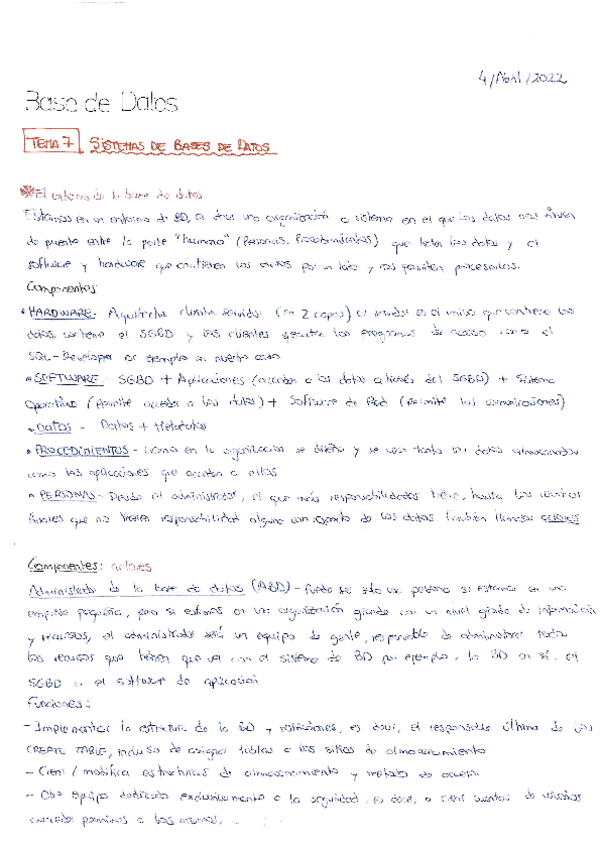 4/Abril/2022
Base de Datos
TEMA 7 SISTEMAS DE BASES DE DATOS
El entorno de la base de datos
Estamos en un entorno de BD, es decir una organización o sistema en el que los datos nos sirven
de puente entre la parte "humana" (Personas, Procedimientos) que tratan los datos y el
software y hardware que contienen los datos por un lado y nos permiten procesarlos.
Componentes
• HARDWARE: Arquitectura cliente servidor (en 2 capas) el servidor es el mismo que contiene los
datos contiene el SGBD y los clientes ejecutan los programas de acceso como el
SQL-Developer por ejemplo en nuestro caso
• SOFTWARE - SGBD + Aplicaciones (acceden a los datos a través del SGBD) + Sistema
Operativo (Permite acceder a los datos) + Software de Red (Permite las comunicaciones)
• DATOS - Datos + Metadatos
• PROCEDIMIENTOS - Como en la organización se diseña y se usa tanto los datos almacenados
como las aplicaciones que acceden a ellos
• PERSONAS - Desde el administrador, el que más responsabilidades tiene, hasta los usuarios
finales que no tienen responsabilidad alguna con respecto de los datos. También llamados
Componentes: actores
Administrador de la base de datos (ABD) - Puede ser solo una persona si estamos en una
empresa pequeña, pero si estamos en una organización grande con un nivel grande de información
y recursos, el administrador será un equipo de gente, responsable de administrar todos
los recursos que tienen que ver con el sistema de BD por ejemplo, la BD en sí, el
SGBD o el software de aplicación
Funciones:
- Implementar la estructura de la BD y restricciones, es decir, el responsable último de los
CREATE TABLE, incluso de asignar tablas a los sitios de almacenamiento
- Crear / modificar estructuras de almacenamiento y métodos de acceso
- Otro equipo dedicado exclusivamente a la seguridad, es decir, a crear cuentas de usuarios
conceder permisos a las mismas,